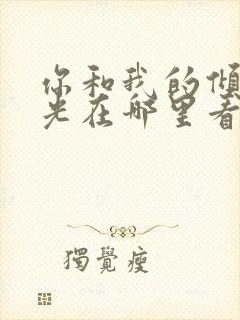 你和我的倾
光在哪里看
獨覺瘦